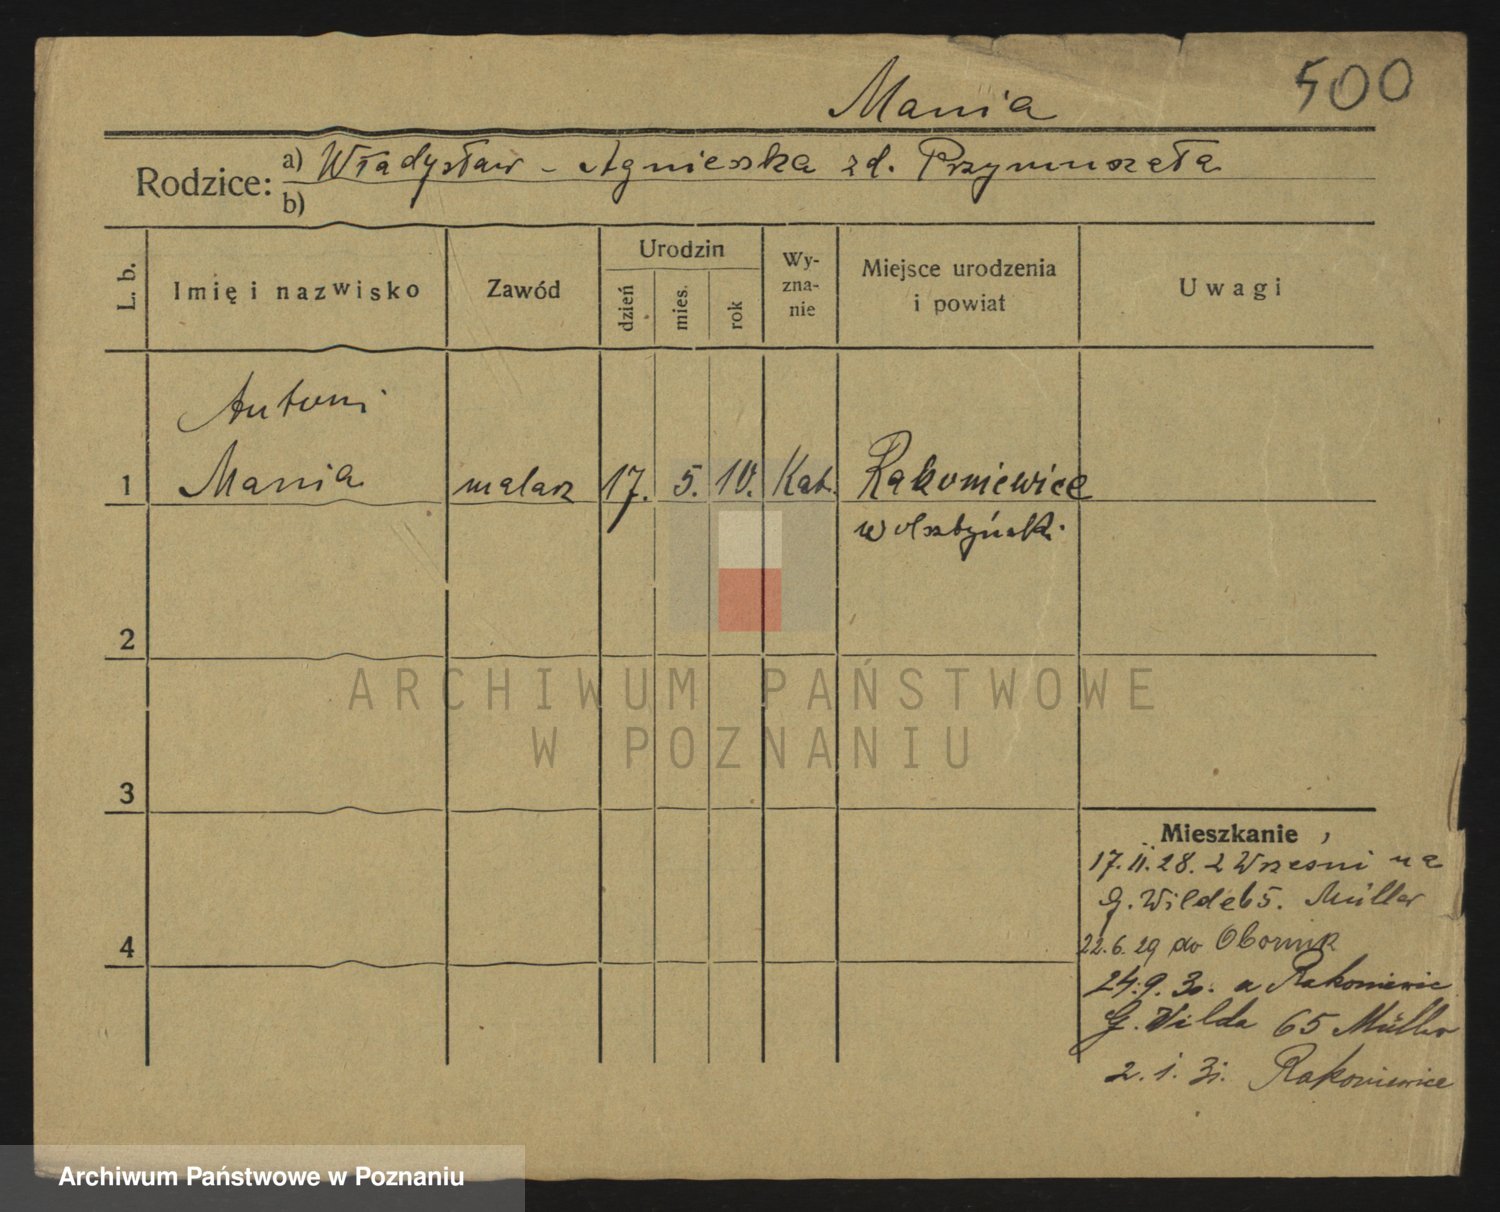 500
Mania
Rodzice: a) Władysław - Agnieszka zd. Przymuszała
b)
L. b. Imię i nazwisko Zawód Urodzin dzień mies. rok Wy-zna-nie Miejsce urodzenia i powiat Uwagi
Antoni
1 Mania malarz 17. 5. 10. Kat. Rakoniewice
wolsztyński.
2
ARCHIWUM PAŃSTWOWE
W POZNANIU
3
Mieszkanie
17.II.28. z Wrześni na
G. Wilde 65. Müller
4
22.6.29 do Obornik
24.9.30. z Rakoniewic
G. Wilda 65 Müller
2.1.31. Rakoniewice
Archiwum Państwowe w Poznaniu